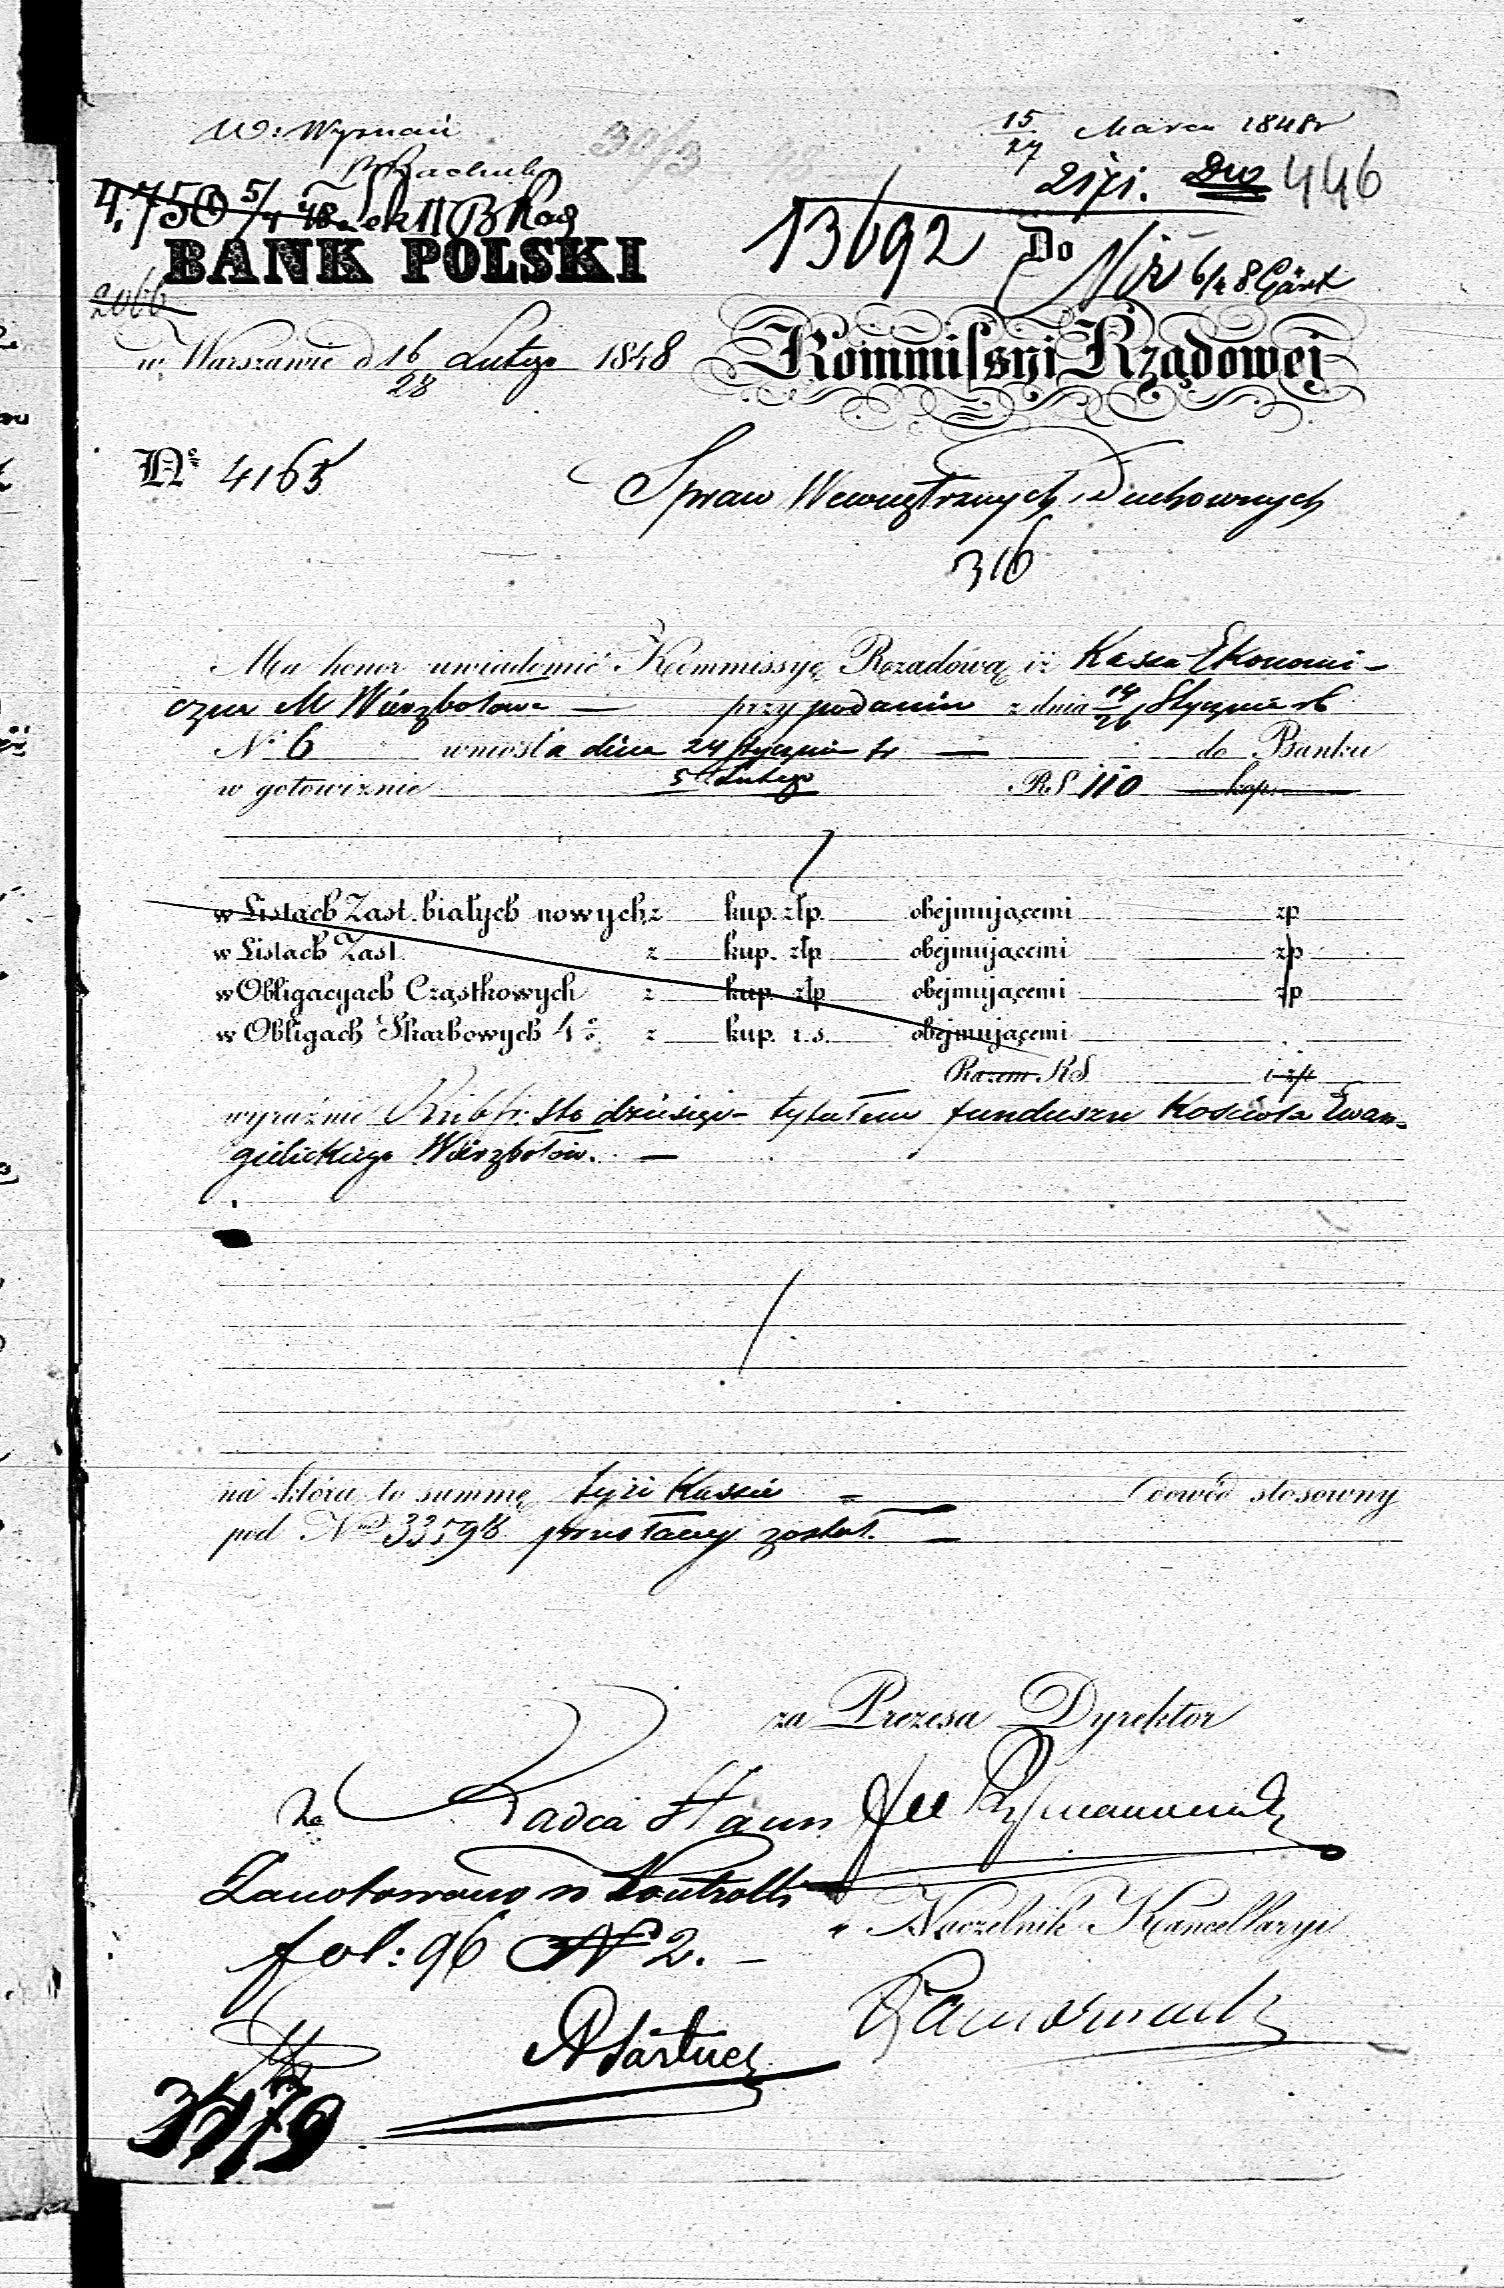 W: Wyznań
15/27 Marca 1848 r
446
4,750 5/4 48 Sek II B
13692 Do
BANK POLSKI
2066
w Warszawie d 16/28 Lutego 1848
Kommissyi Rządowej
No 4165
Spraw Wewnętrznych i Duchownych
316
Ma honor uwiadomić Kommissyę Rządową iż Kassa Ekonomi-
czna M Wierzbołowa — przy podaniu z dnia 14/26 Stycznia rb
No 6 wniosła dnia 24 Stycznia / 5 Lutego tr — do Banku
w gotowiznie RS 110 kop.
w Listach Zast. białych nowych z kup. złp. obejmującemi zp
w Listach Zast. z kup. złp obejmującemi zp
w Obligacyach Cząstkowych z kup. złp obejmującemi zp
w Obligach Skarbowych 4% z kup. r.s. obejmującemi
Razem RS
wyraźnie Rubli sto dziesięć tytułem funduszu Kościoła Ewan-
gielickiego Wierzbołow. —
na którą to summę tejże Kassie dowód stosowny
pod No 33598 przesłany został. —
za Prezesa Dyrektor
za Radca Stanu
Zanotowano w Kontrolli
Naczelnik Kancellaryi
fol: 96 No 2. —
3479